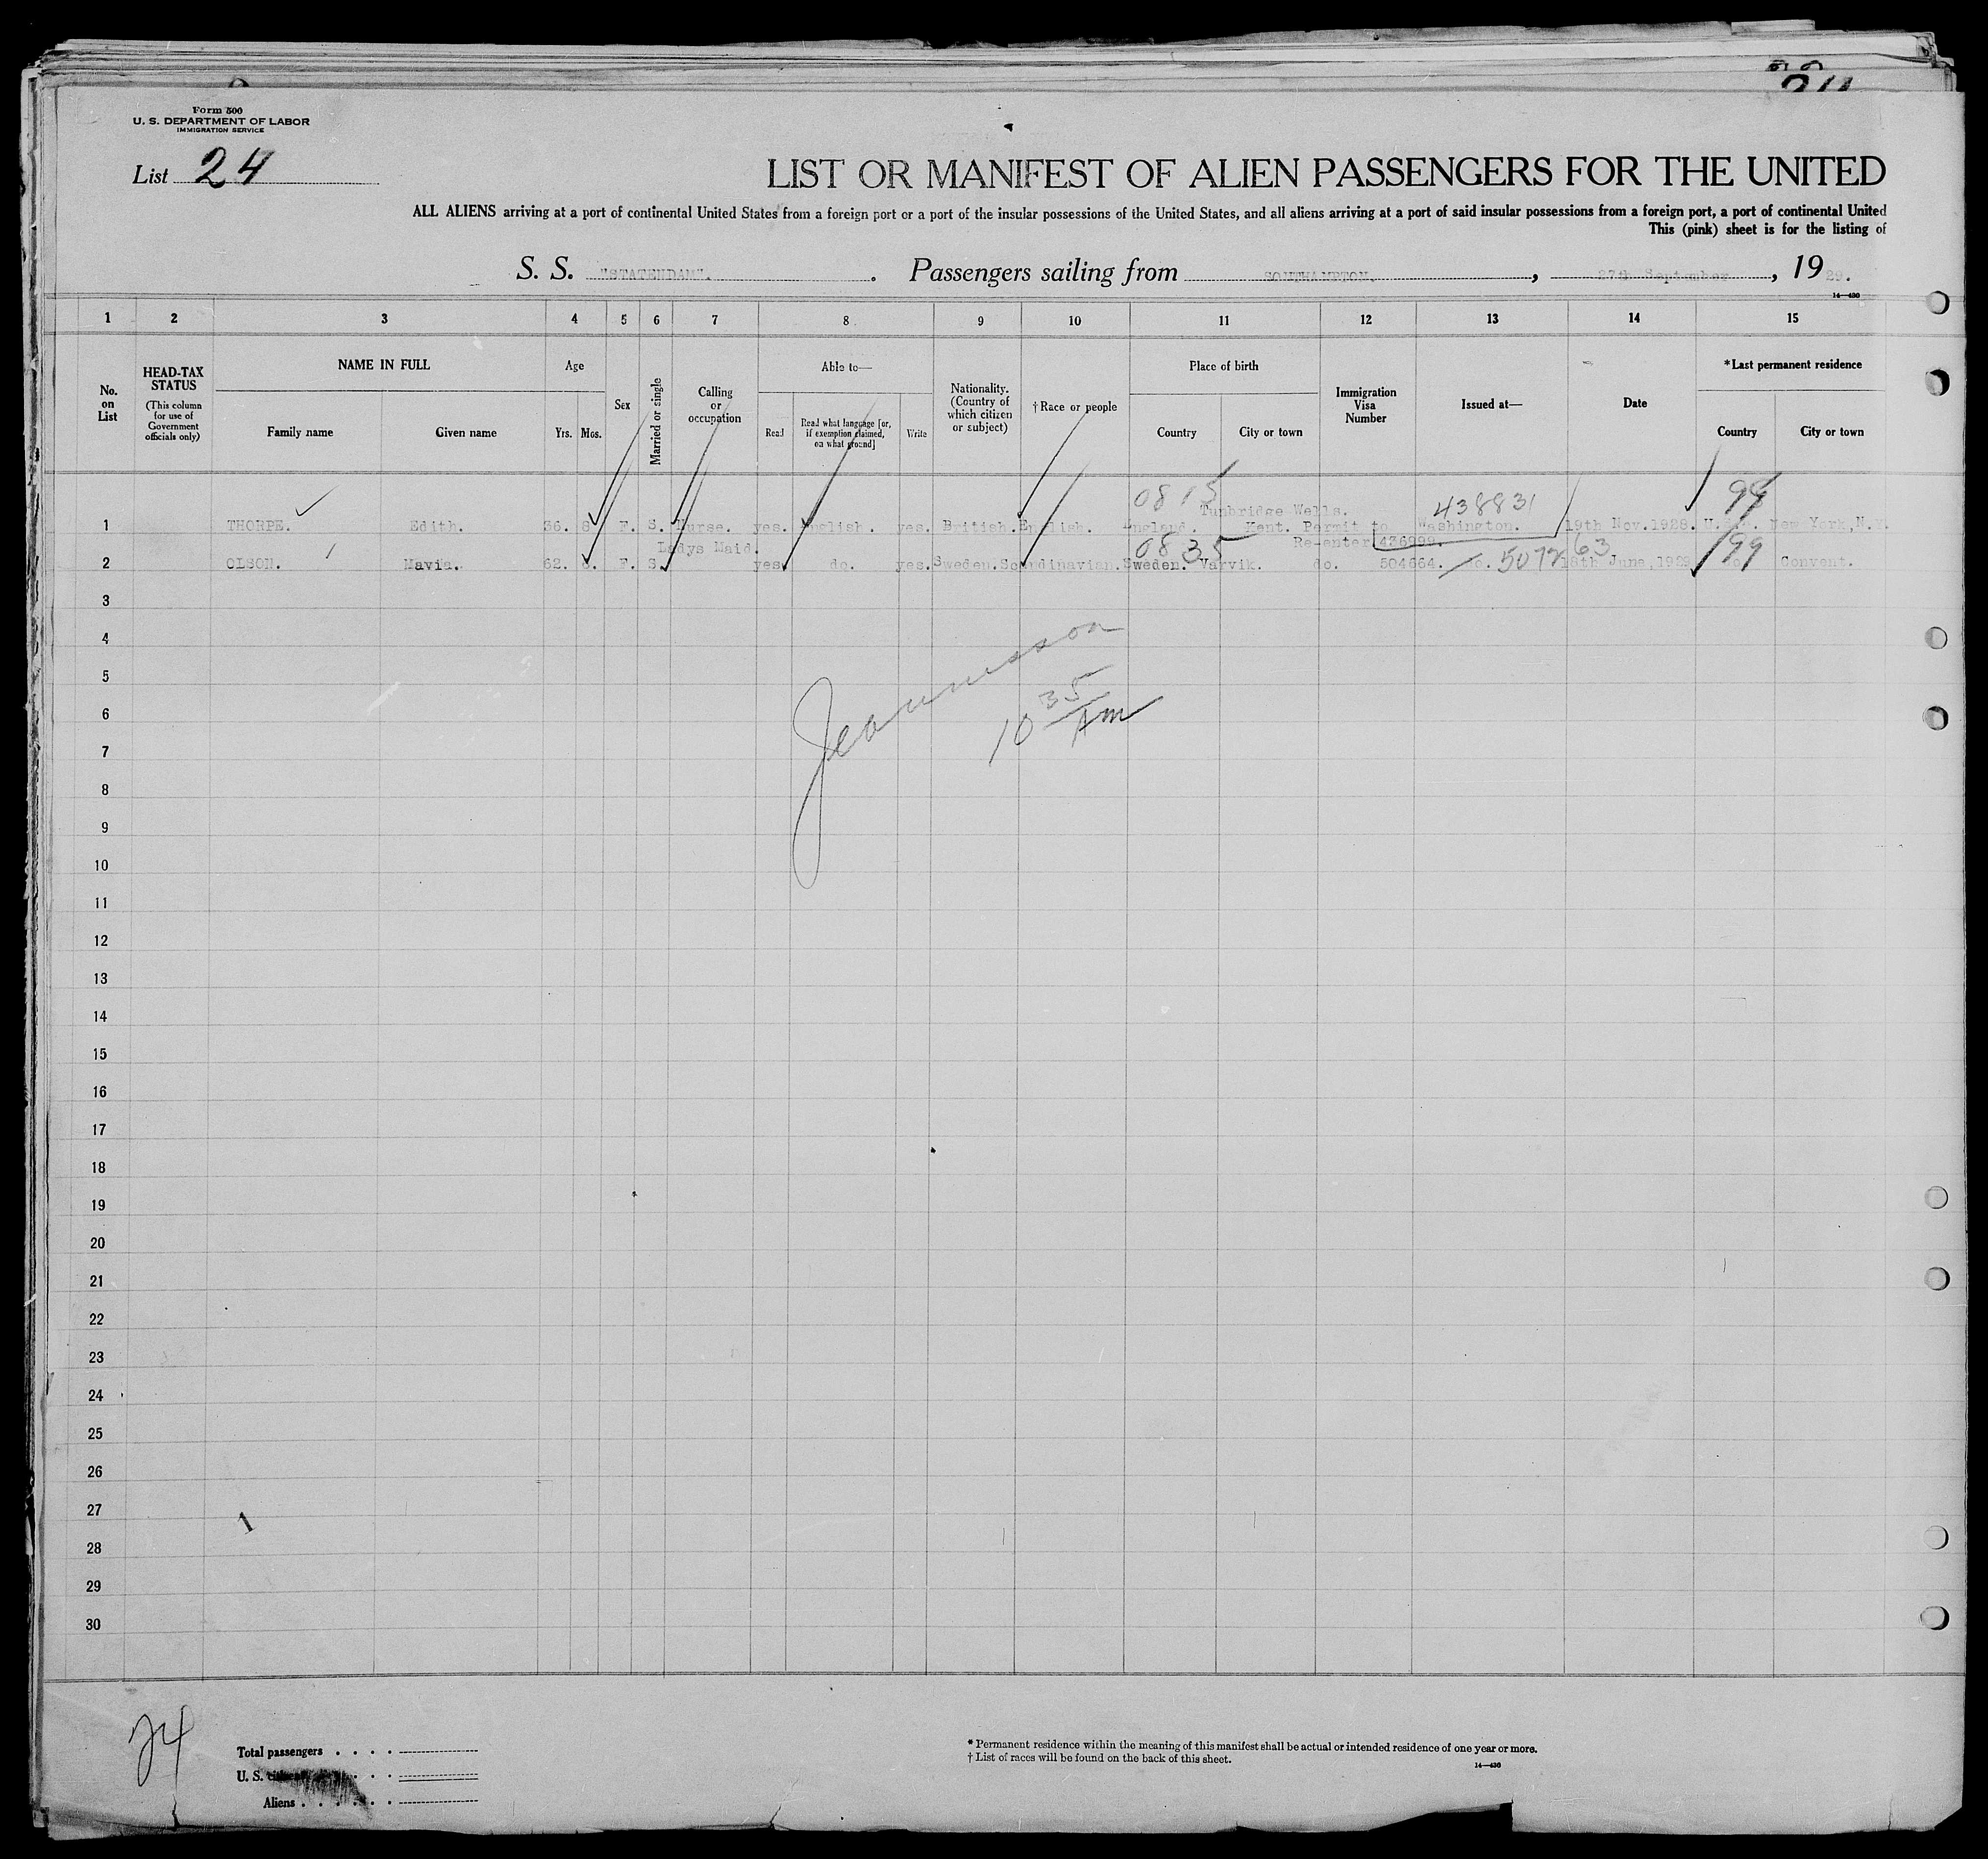 Form 500
U. S. DEPARTMENT OF LABOR
IMMIGRATION SERVICE
List 24
LIST OR MANIFEST OF ALIEN PASSENGERS FOR THE UNITED
ALL ALIENS arriving at a port of continental United States from a foreign port or a port of the insular possessions of the United States, and all aliens arriving at a port of said insular possessions from a foreign port, a port of continental United
This (pink) sheet is for the listing of
S. S. "STATENDAM". Passengers sailing from SOUTHAMPTON. , 27th September , 19 29.
14—430
1 2 3 4 5 6 7 8 9 10 11 12 13 14 15
No. on List
HEAD-TAX STATUS
(This column for use of Government officials only)
NAME IN FULL
Family name Given name
Age
Yrs. Mos.
Sex
Married or single
Calling or occupation
Able to—
Read Read what language [or, if exemption claimed, on what ground] Write
Nationality. (Country of which citizen or subject)
†Race or people
Place of birth
Country City or town
Immigration Visa Number
Issued at—
Date
*Last permanent residence
Country City or town
0815 438831 99
Tunbridge Wells.
1 THORPE. Edith. 36. 8. F. S. Nurse. yes. English. yes. British. English. England. Kent. Permit to Washington. 19th Nov.1928. U.S.A. New York,N.Y.
Ladys Maid. 0835 Re-enter 436999. 63 99
2 OLSON. Mavia. 62. F. S. yes. do. yes. Sweden. Scandinavian. Sweden. Varvik. do. 504664. do. 5072 18th June,1929 do. Convent.
3
4
5
6
7
8
9
10
11
12
13
14
15
16
17
18
19
20
21
22
23
24
25
26
27
28
29
30
10 35 Am
24
Total passengers
U. S. citizens
Aliens
* Permanent residence within the meaning of this manifest shall be actual or intended residence of one year or more.
† List of races will be found on the back of this sheet.
14—430